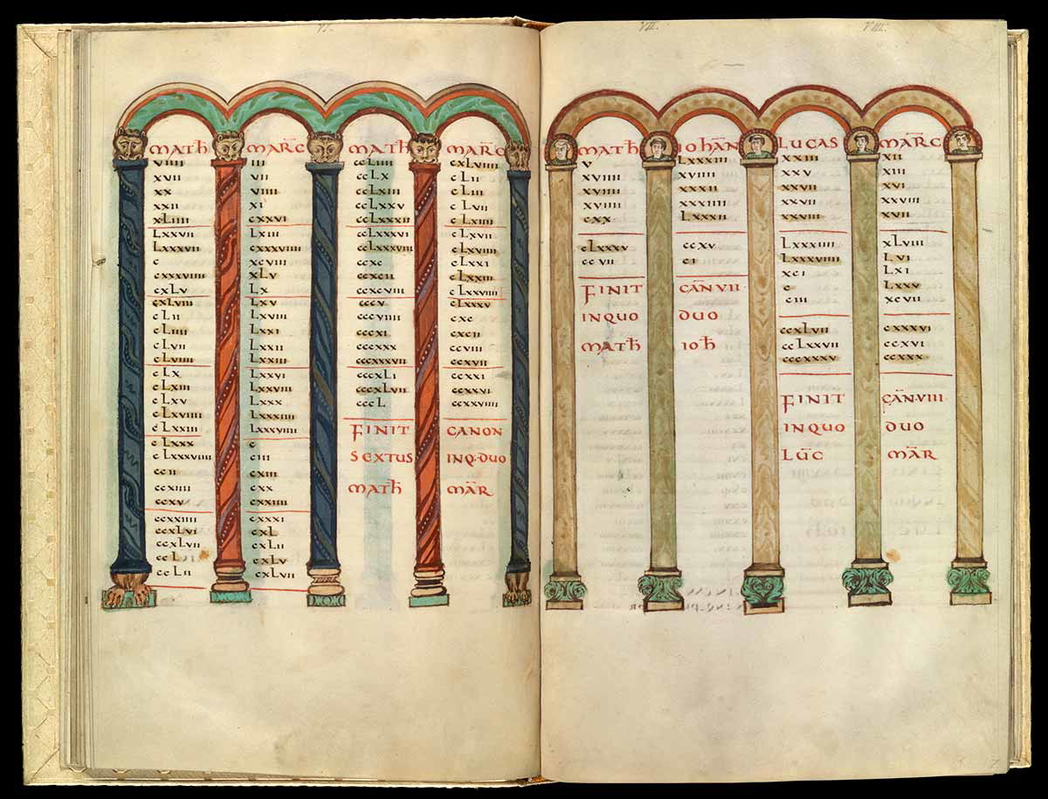 VI.
MATH MARC
viiii iii
xvii vii
xx viiii
xxii xi
xLiiii cxxvi
Lxxvii Lxiii
Lxxxvii cxxxviiii
c xcviii
cxxxviiii xLv
cxLv Lx
cxLviii Lxv
cLii Lxviii
cLiiii Lxxi
cLvii Lxxii
cLviiii Lxxiii
cLx Lxxvi
cLxiii Lxxviii
cLxv Lxxx
cLxviiii Lxxxiiii
cLxxiii Lxxxviiii
cLxxx c
cLxxxviiii ciii
ccii cxiii
ccxiiii cxx
ccxv cxxiii
ccxxiiii cxxxi
ccxLvi cxL
ccxLvii cxLii
ccL cxLv
ccLii cxLvii
MATH MARC
ccLiiii cxLviiii
ccLx cLii
ccLxiii cLiii
ccLxxv cLvii
ccLxxxii cLxiii
ccLxxxvi cLxvii
ccLxxxviii cLxviiii
ccxc cLxxi
ccxcii cLxxiii
ccxcviii cLxxviiii
cccv cLxxxv
cccviiii cxc
cccxi cxcii
cccxxx ccviii
cccxxxvii ccxvi
cccxLi ccxxi
cccxLvii ccxxvi
cccL ccxxviiii
FINIT CANON
SEXTUS INQ·DUO
MATH MAR
VII.
MATH IOHAN
v Lxxxiii
xviiii xviiii
xviiii xxxii
xviiii xxxiiii
cxx Lxxxii
cLxxxv ccxv
ccvii ci
FINIT CAN VII
INQUO DUO
MATH IOH
VIII.
LUCAS MARC
xxiii xii
xxv xiii
xxvii xvi
xxvii xxviii
xxviii xvii
Lxxxiiii xLviii
Lxxxviiii Lvi
xci Lxi
c Lxxv
ciii xcvii
ccxLvii cxxxvi
ccLxxvii ccxvi
cccxxxv ccxxx
FINIT CAN·VIII·
INQUO DUO
LUC MAR